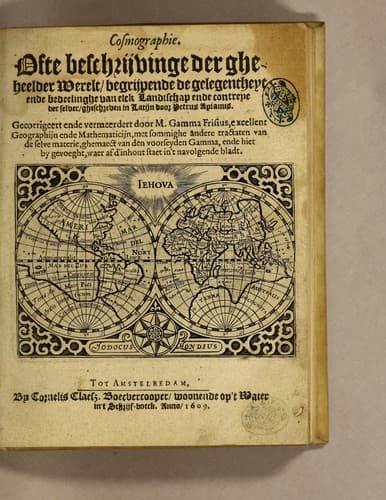 Cosmographie.
Ofte beschrijvinge der ghe-
heelder Werelt/ begrijpende de gelegentheyt
ende bedeelinghe van elck Landtschap ende contreye
der selver/ gheschreven in Latijn door Petrus Apianus.
Gecorrigeert ende vermeerdert door M. Gamma Frisius, excellent
Geographijn ende Mathematicijn, met sommighe andere tractaten van
de selve materie, ghemaeckt van den voorseyden Gamma, ende hier
by gevoeght, waer af d'inhout staet in't navolgende bladt.
IEHOVA
AMERI
MAR
DEL
NORT
MAR DEL
Terra
IODOCUS HONDIUS
TOT AMSTELREDAM,
By Cornelis Claesz. Boeckvercooper/ woonende op't Water
in't Schrijf-boeck. Anno/ 1609.